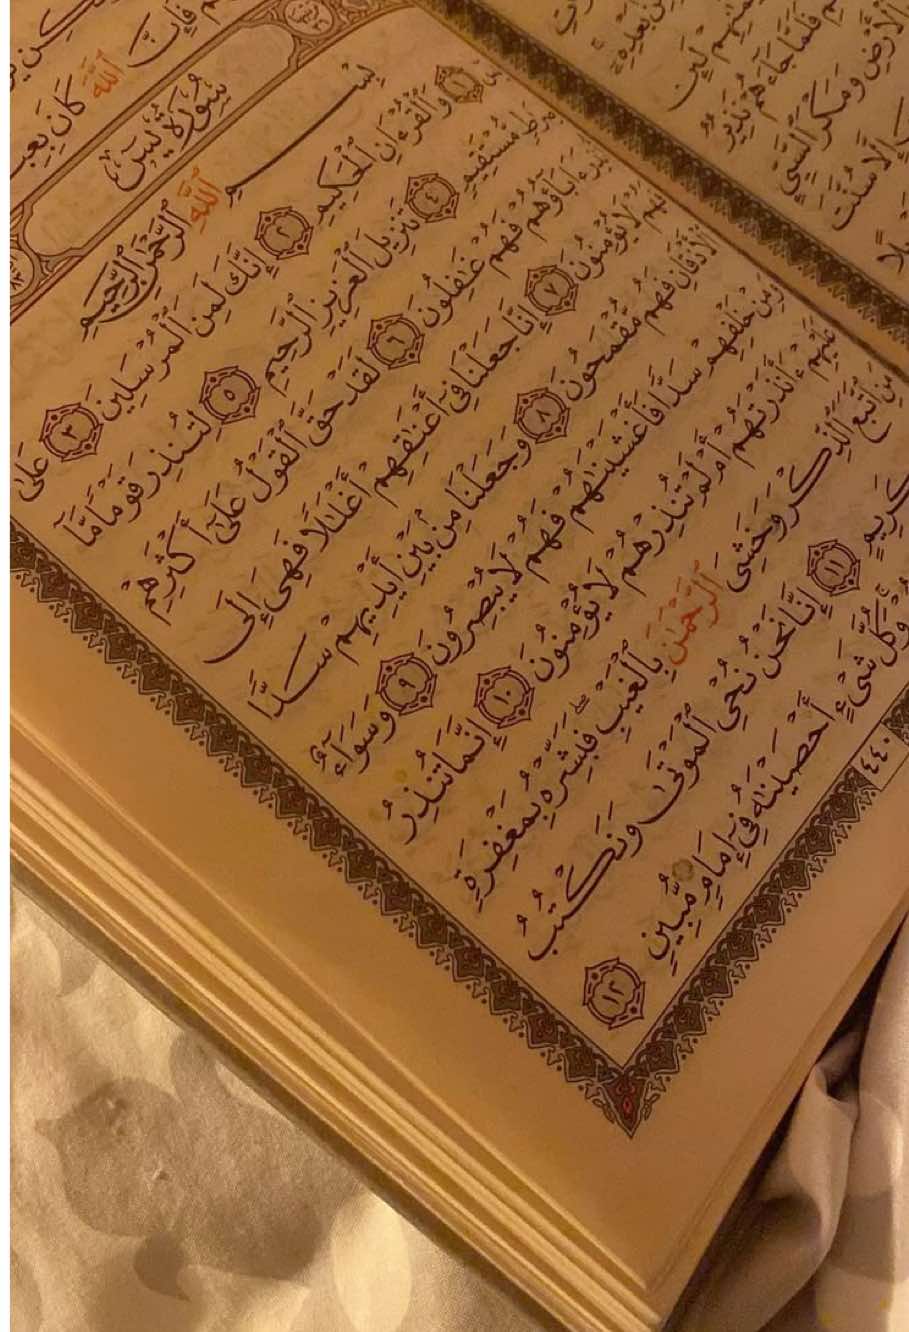 مِنۢ بَعْدِهِۦٓ
لَئِن
فَلَمَّا جَآءَهُمْ نَذِيرٌ
ٱلْأَرْضِ وَمَكْرَ ٱلسَّيِّ
إِلَّا سُنَّتَ
فَإِنَّ ٱللَّهَ كَانَ بِعِبَ
سُورَةُ يسٓ
بِسْمِ ٱللَّهِ ٱلرَّحْمَٰنِ ٱلرَّحِيمِ
١ وَٱلْقُرْءَانِ ٱلْحَكِيمِ ٢ إِنَّكَ لَمِنَ ٱلْمُرْسَلِينَ ٣ عَلَىٰ
صِرَٰطٍ مُّسْتَقِيمٍ ٤ تَنزِيلَ ٱلْعَزِيزِ ٱلرَّحِيمِ ٥ لِتُنذِرَ قَوْمًا مَّآ
أُنذِرَ ءَابَآؤُهُمْ فَهُمْ غَٰفِلُونَ ٦ لَقَدْ حَقَّ ٱلْقَوْلُ عَلَىٰٓ أَكْثَرِهِمْ
فَهُمْ لَا يُؤْمِنُونَ ٧ إِنَّا جَعَلْنَا فِىٓ أَعْنَٰقِهِمْ أَغْلَٰلًا فَهِىَ إِلَى
ٱلْأَذْقَانِ فَهُم مُّقْمَحُونَ ٨ وَجَعَلْنَا مِنۢ بَيْنِ أَيْدِيهِمْ سَدًّا
وَمِنْ خَلْفِهِمْ سَدًّا فَأَغْشَيْنَٰهُمْ فَهُمْ لَا يُبْصِرُونَ ٩ وَسَوَآءٌ
عَلَيْهِمْ ءَأَنذَرْتَهُمْ أَمْ لَمْ تُنذِرْهُمْ لَا يُؤْمِنُونَ ١٠ إِنَّمَا تُنذِرُ
مَنِ ٱتَّبَعَ ٱلذِّكْرَ وَخَشِىَ ٱلرَّحْمَٰنَ بِٱلْغَيْبِ ۖ فَبَشِّرْهُ بِمَغْفِرَةٍ
كَرِيمٍ ١١ إِنَّا نَحْنُ نُحْىِ ٱلْمَوْتَىٰ وَنَكْتُبُ
وَكُلَّ شَىْءٍ أَحْصَيْنَٰهُ فِىٓ إِمَامٍ مُّبِينٍ ١٢
٤٤٠